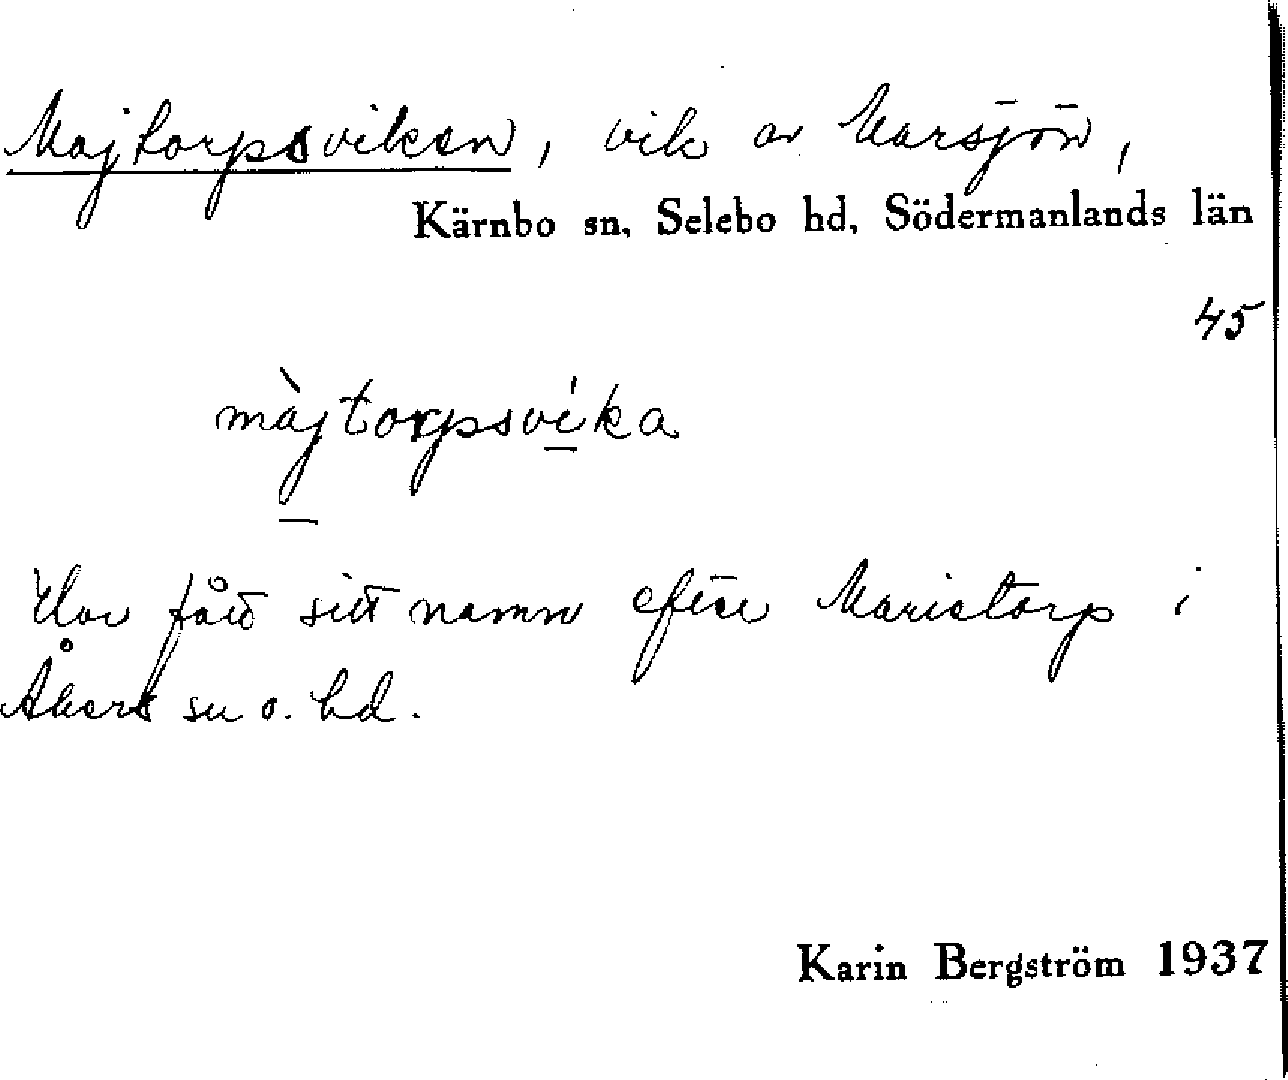 Majtorpsviken, vik av Marsjön,
Kärnbo sn, Selebo hd, Södermanlands län
45
màjtorpsvíka
Har fått sitt namn efter Marietorp i
Åkers sn o. hd.
Karin Bergström 1937